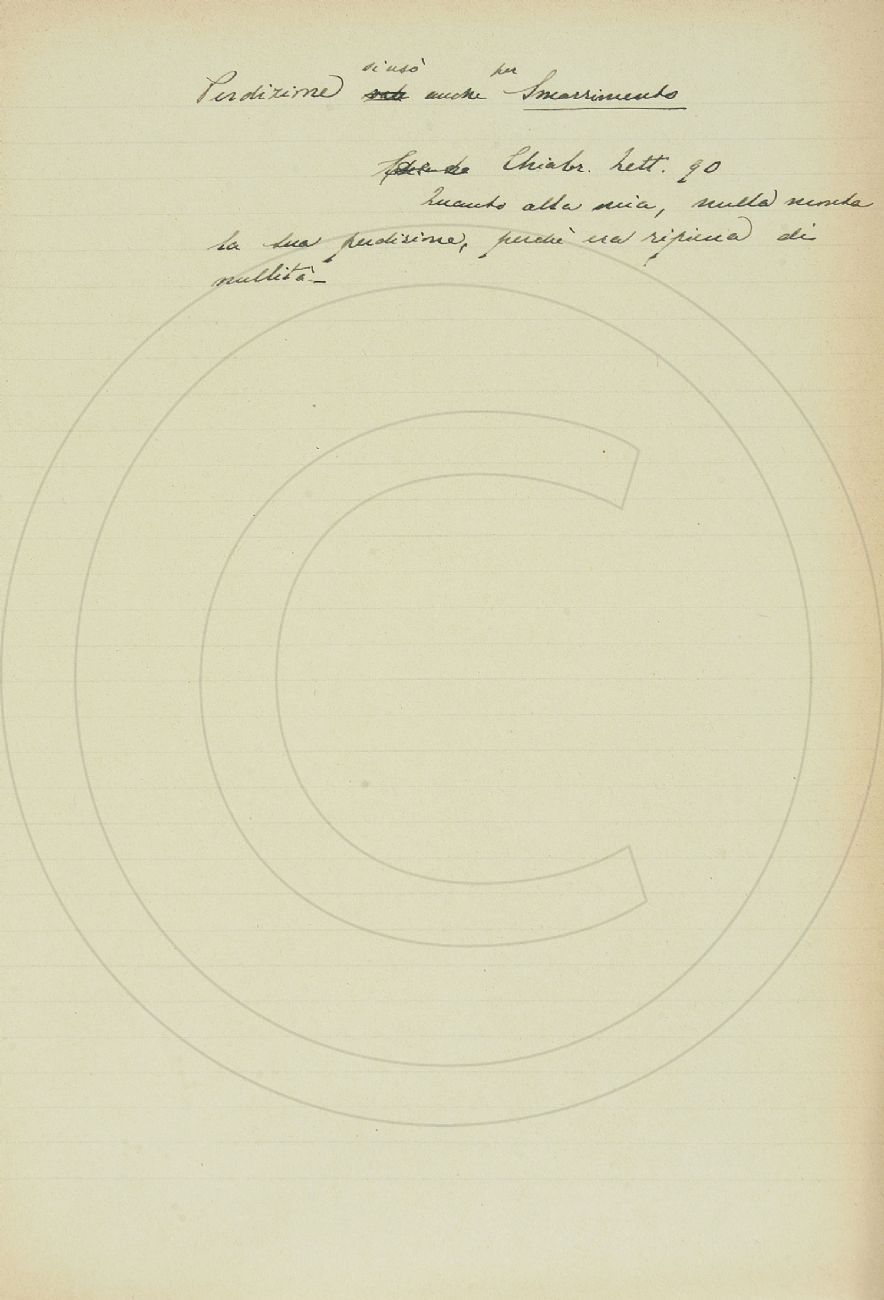 Perdizione si usò anche per Smarrimento
Chiabr. Lett. 90
Quanto alla mia, nulla monta
la sua perdizione, perchè era ripiena di
nullità –